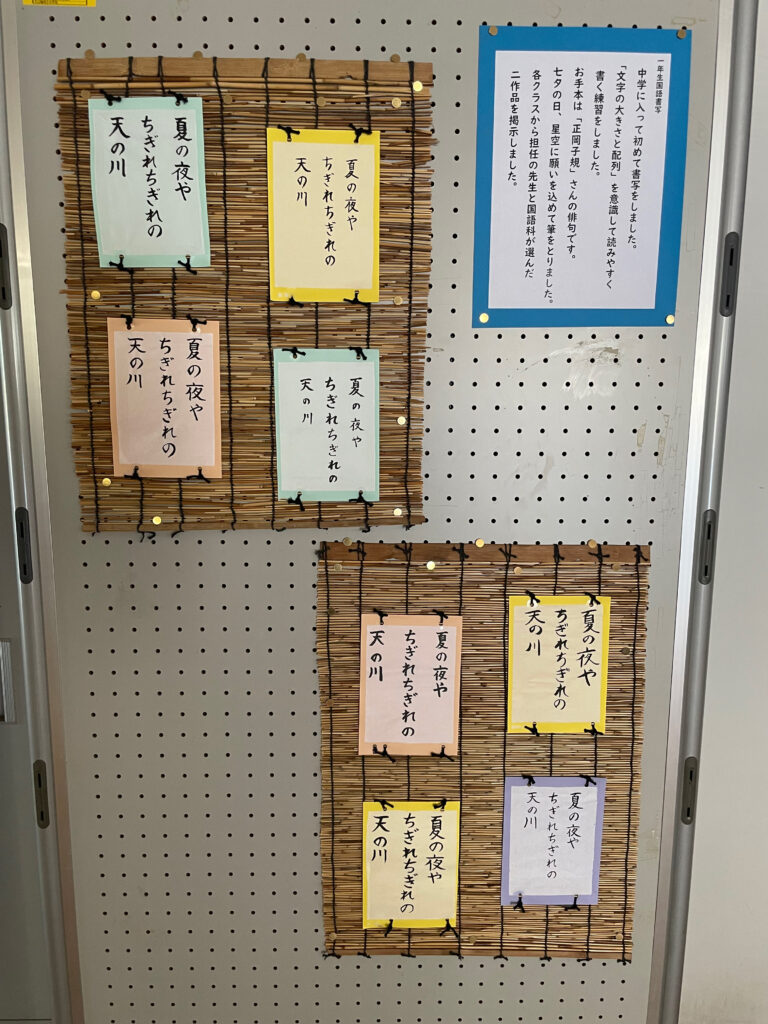 一年生国語書写
中学に入って初めて書写をしました。
「文字の大きさと配列」を意識して読みやすく
書く練習をしました。
お手本は「正岡子規」さんの俳句です。
七夕の日、星空に願いを込めて筆をとりました。
各クラスから担任の先生と国語科が選んだ
二作品を掲示しました。
夏の夜や
ちぎれちぎれの
天の川
夏の夜や
ちぎれちぎれの
天の川
夏の夜や
ちぎれちぎれの
天の川
夏の夜や
ちぎれちぎれの
天の川
夏の夜や
ちぎれちぎれの
天の川
夏の夜や
ちぎれちぎれの
天の川
夏の夜や
ちぎれちぎれの
天の川
夏の夜や
ちぎれちぎれの
天の川